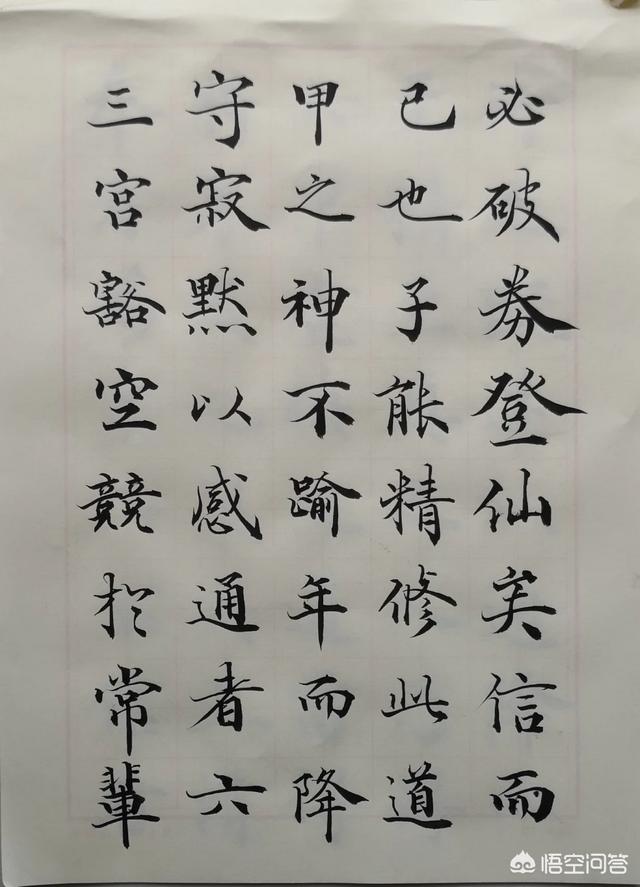 必破劵登仙矣信而
已也子能精修此道
甲之神不踰年而降
守寂黙以感通者六
三宫豁空競於常輩
悟空问答